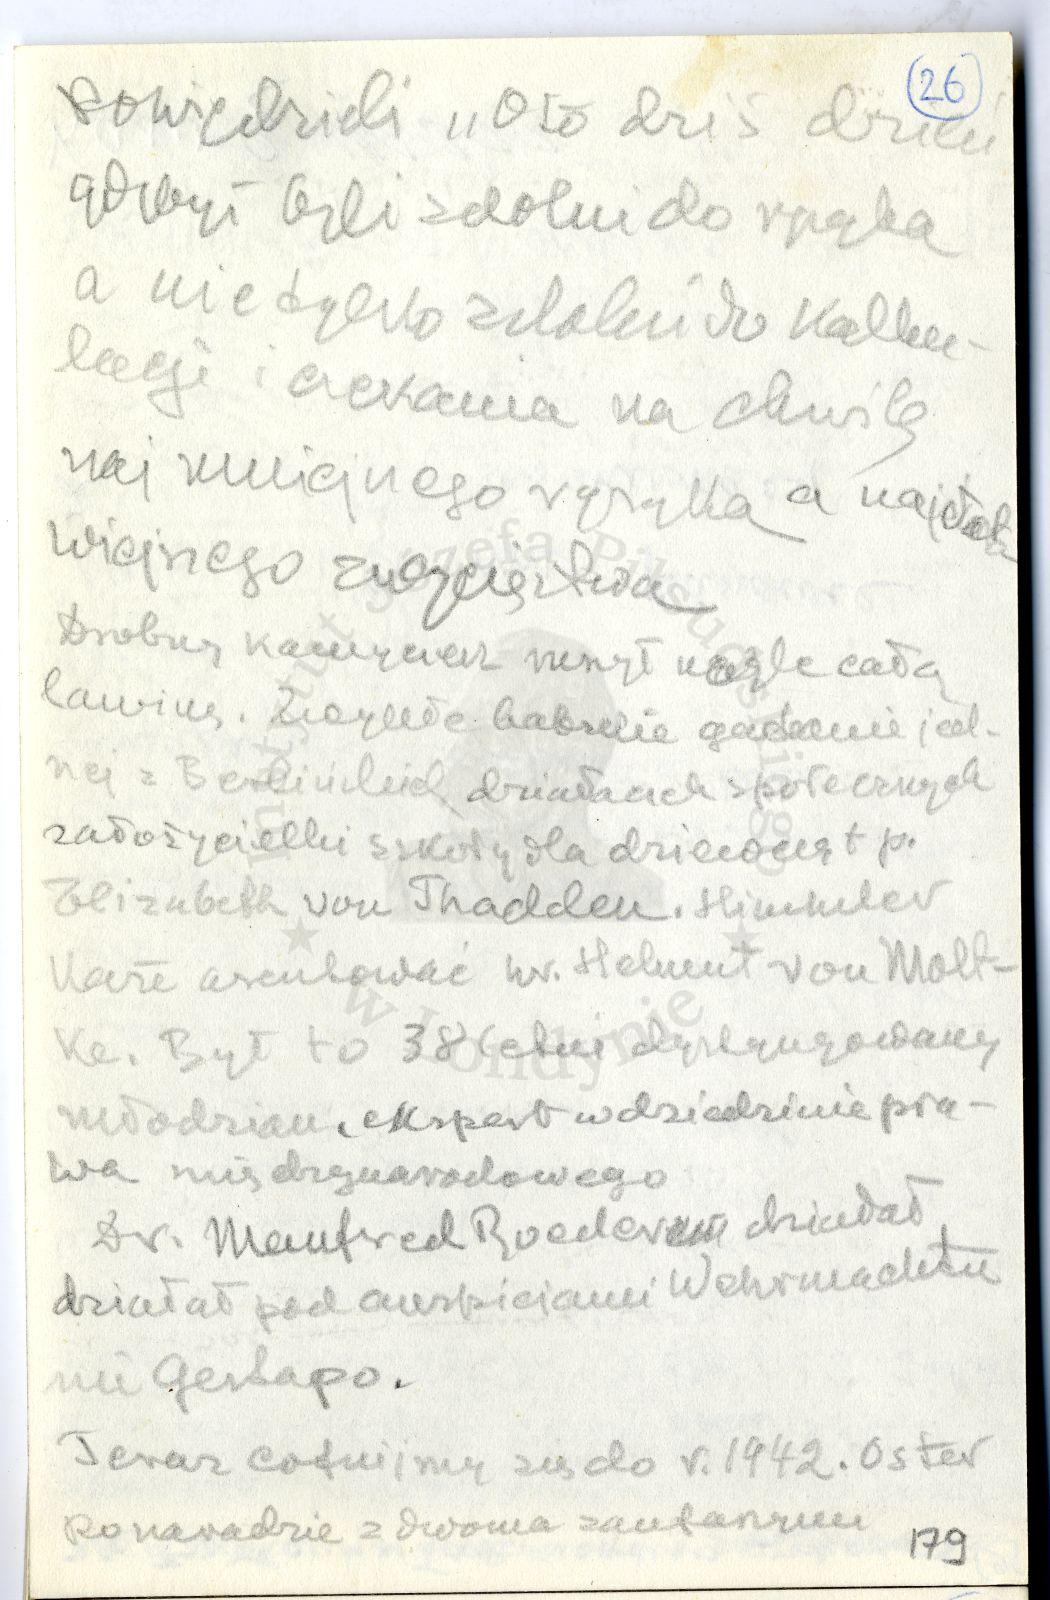 26
powiedzieli „Oto dziś dzień
gdyby byli zdolni do ryzyka
a nie tylko zdolni do kalku-
lacji i czekania na chwilę
najmniejnego ryzyka a najłat
wiejszego zwycięstwa
Drobny kamyczek ruszył nagle całą
lawinę. Zwykłe babskie gadanie jed-
nej z Berlińskich działaczek społecznych
założycielki szkoły dla dziewcząt p.
Elizabeth von Thadden. Himmler
każe aresztować hr. Helmut von Molt-
ke. Był to 38 letni dystyngowany
młodzian, ekspert w dziedzinie pra-
wa międzynarodowego
Dr. Manfred Roeder działał
działał pod auspicjami Wehrmachtu
nie Gestapo.
Teraz cofnijmy się do r. 1942. Oster
po naradzie z dwoma zaufanymi
179
Instytut Józefa Piłsudskiego
w Londynie